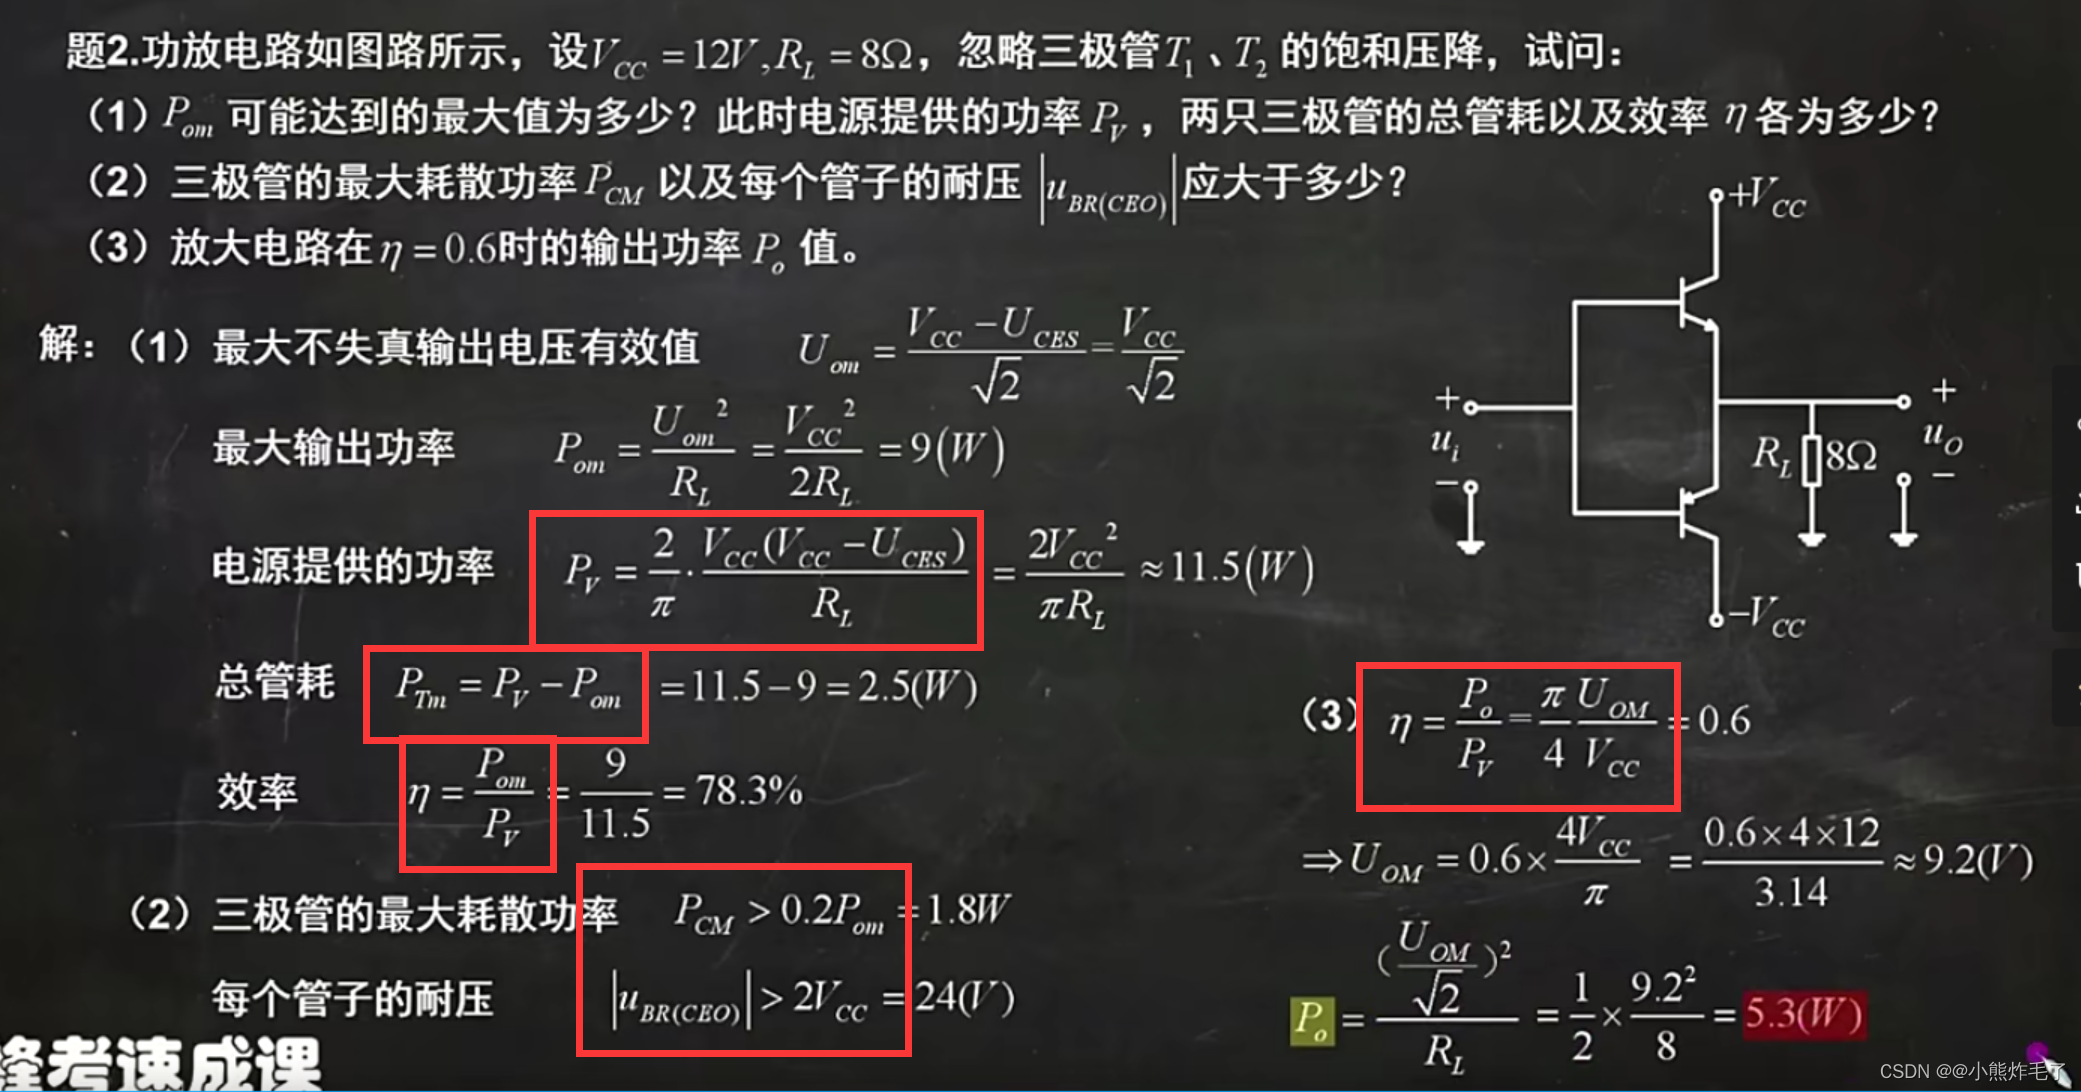 题2.功放电路如图路所示，设V_CC = 12V, R_L = 8Ω，忽略三极管T_1、T_2 的饱和压降，试问：
（1）P_om 可能达到的最大值为多少？此时电源提供的功率 P_V，两只三极管的总管耗以及效率 η 各为多少？
（2）三极管的最大耗散功率 P_CM 以及每个管子的耐压 |u_BR(CEO)| 应大于多少？
（3）放大电路在 η = 0.6时的输出功率 P_o 值。
解：（1）最大不失真输出电压有效值 U_om = (V_CC − U_CES)/√2 = V_CC/√2
最大输出功率 P_om = U_om²/R_L = V_CC²/2R_L = 9(W)
电源提供的功率 P_V = 2/π · V_CC(V_CC − U_CES)/R_L = 2V_CC²/πR_L ≈ 11.5(W)
总管耗 P_Tm = P_V − P_om = 11.5 − 9 = 2.5(W)
效率 η = P_om/P_V = 9/11.5 = 78.3%
（2）三极管的最大耗散功率 P_CM > 0.2P_om = 1.8W
每个管子的耐压 |u_BR(CEO)| > 2V_CC = 24(V)
（3） η = P_o/P_V = π/4 U_OM/V_CC = 0.6
⇒ U_OM = 0.6 × 4V_CC/π = 0.6×4×12/3.14 ≈ 9.2(V)
P_o = (U_OM/√2)²/R_L = 1/2 × 9.2²/8 = 5.3(W)
+V_CC
+
u_i
−
R_L
8Ω
+
u_O
−
−V_CC
蜂考速成课
CSDN @@小熊炸毛了